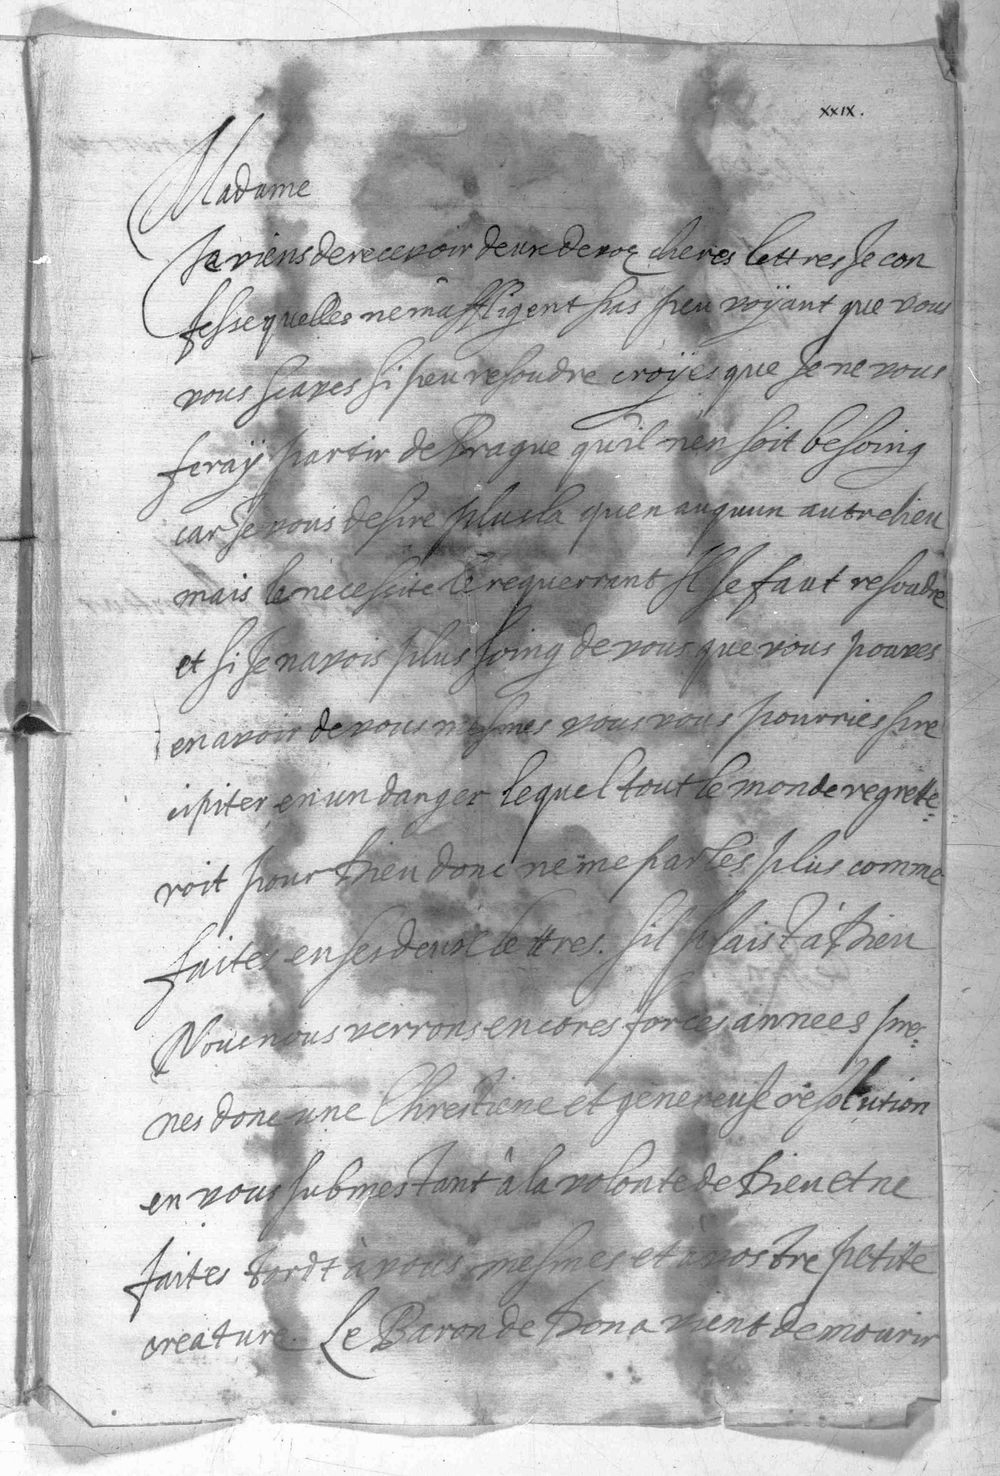 xxix.
Madame
Je viens de recevoir deux de voz cheres lettres Je con
fesse quelles ne m'affligent pas peu voÿant que vous
vous scaves si peu resoudre croÿes que Je ne vous
feraÿ partir de Prague qu'il n'en soit besoing
car Je vous desire plus la qu'en auquun autre lieu
mais le necessite le requerrant Il se faut resoudre
et si Je n'avois plus soing de vous que vous pouves
en avoir de vous mesmes vous vous pourries pre
cipiter en un danger lequel tout le monde regrette-
roit pour Dieu donc ne me parles plus comme
faites en ses deux lettres. s'il plaist à Dieu
Nous nous verrons encores forces annees pre-
nes donc une Chrestiene et genereuse resolution
en vous submestant à la volonte de Dieu et ne
faites tordt à vous mesmes et à nostre petite
creature. Le Baron de Dona vient de mourir